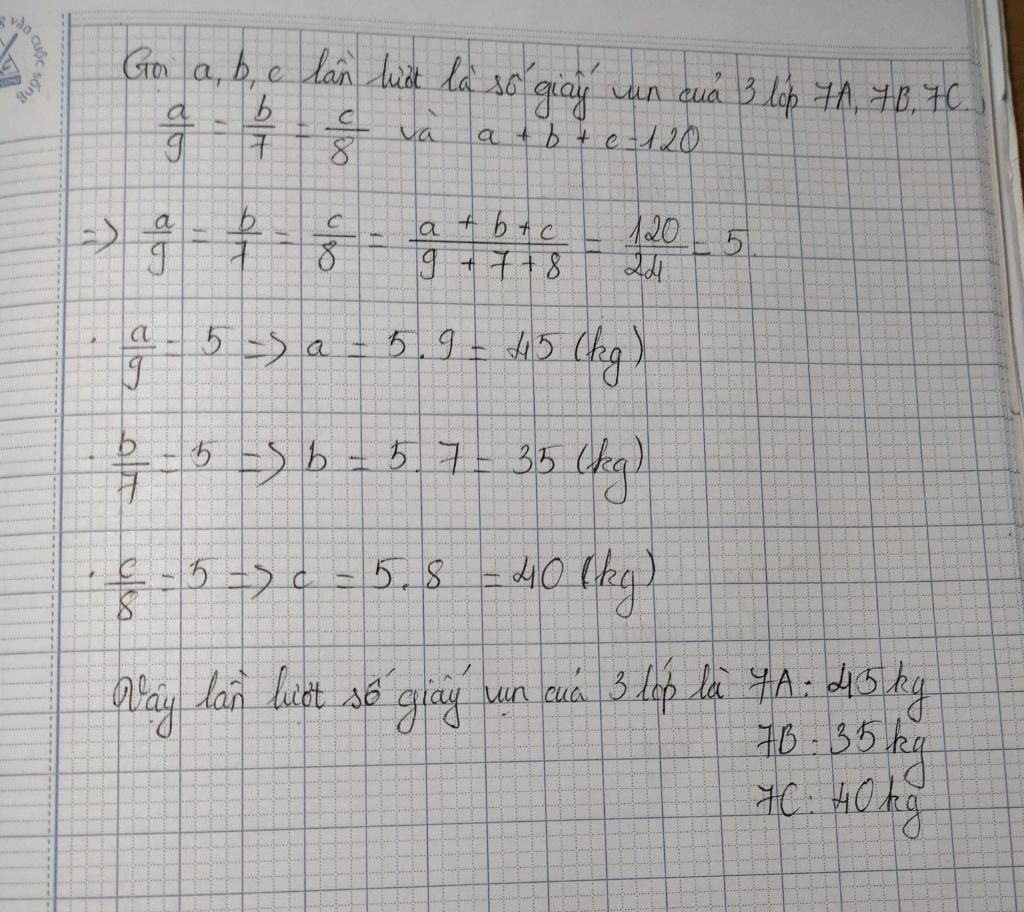 g vào cuộc sống
Gọi a, b, c lần lượt là số giấy vụn cuả 3 lớp 7A, 7B, 7C,
a/9 = b/7 = c/8 và a + b + c = 120
=> a/9 = b/7 = c/8 = (a + b + c)/(9 + 7 + 8) = 120/24 = 5.
· a/9 = 5 => a = 5 . 9 = 45 (kg)
· b/7 = 5 => b = 5 . 7 = 35 (kg)
· c/8 = 5 => c = 5 . 8 = 40 (kg)
Vậy lần lượt số giấy vụn cuả 3 lớp là 7A : 45 kg
7B : 35 kg
7C : 40 kg